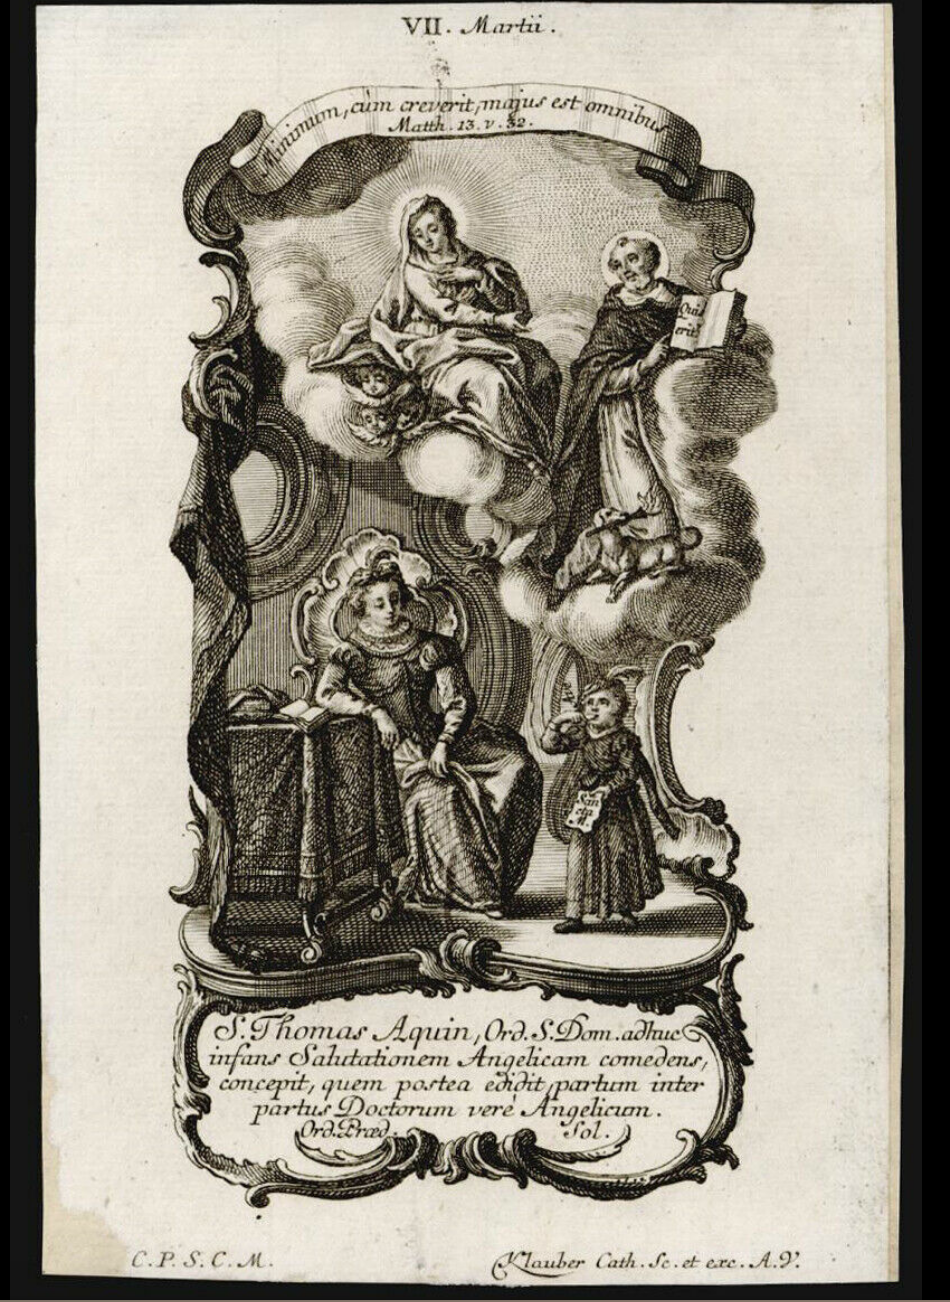 VII. Martii.
Minimum, cùm creverit, majus est omnibus
Matth. 13. v. 32.
Qui
erit
San
cta
M.
S. Thomas Aquin, Ord. S. Dom. adhuc
infans Salutationem Angelicam comedens,
concepit, quem postea edidit, partum inter
partus Doctorum verè Angelicum.
Ord. Præd. Sol.
C. P. S. C. M.
Klauber Cath. Sc. et exc. A. V.